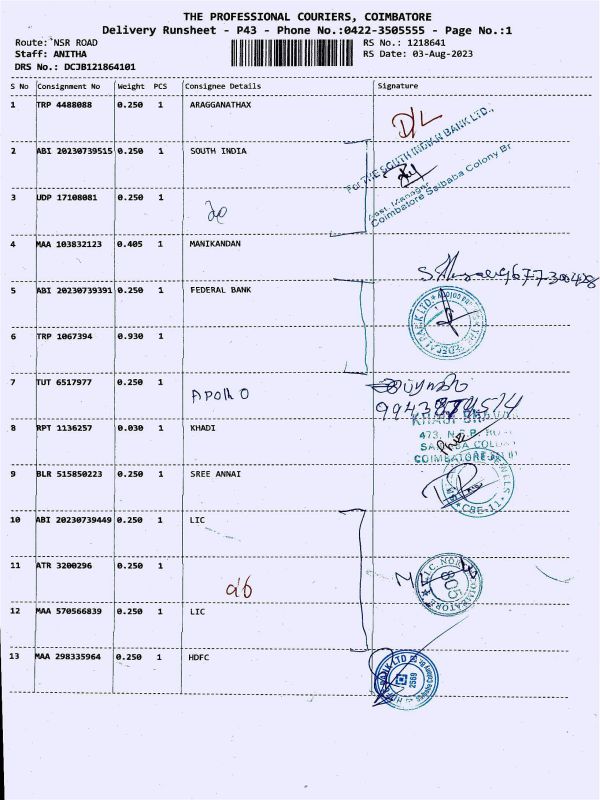 THE PROFESSIONAL COURIERS, COIMBATORE
Delivery Runsheet - P43 - Phone No.:0422-3505555 - Page No.:1
Route: NSR ROAD RS No.: 1218641
Staff: ANITHA RS Date: 03-Aug-2023
DRS No.: DCJB121864101
S No Consignment No Weight PCS Consignee Details Signature
1 TRP 4488088 0.250 1 ARAGGANATHAX
For THE SOUTH INDIAN BANK LTD.,
2 ABI 20230739515 0.250 1 SOUTH INDIA
Asst. Manager
Coimbatore Saibaba Colony Br
3 UDP 17108081 0.250 1
4 MAA 103832123 0.405 1 MANIKANDAN
5 ABI 20230739391 0.250 1 FEDERAL BANK
6 TRP 1067394 0.930 1
7 TUT 6517977 0.250 1 Apollo
8 RPT 1136257 0.030 1 KHADI
473, N.S.R.
COIMBATORE
9 BLR 515850223 0.250 1 SREE ANNAI
CBE-11
10 ABI 20230739449 0.250 1 LIC
11 ATR 3200296 0.250 1
805
COIMBATORE
12 MAA 570566839 0.250 1 LIC
13 MAA 298335964 0.250 1 HDFC
BANK LTD
2569